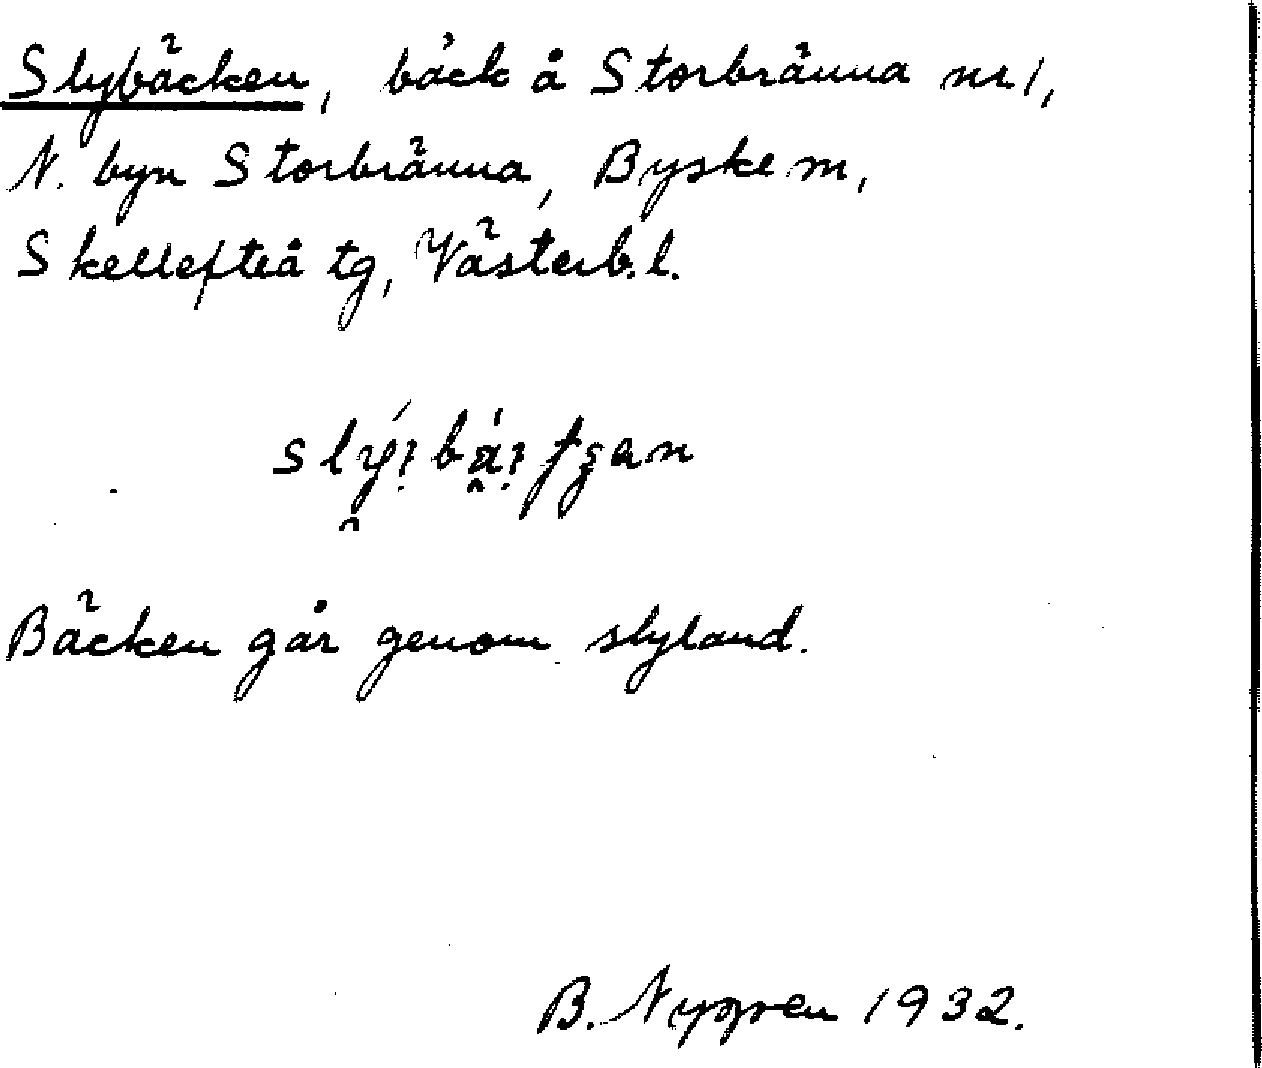 Slybäcken, bäck å Storbränna nr 1,
N. byn Storbränna, Byske sn,
Skellefteå tg, Västerb. l.
Bäcken går genom slyland.
B. Nygren 1932.